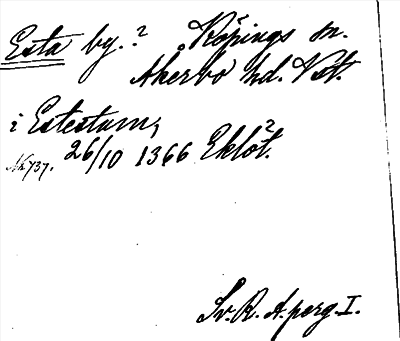 Esta by.? Köpings sn.
Åkerbo hd. Vstm.
i Estestum,
Nr 737. 26/10 1366 Eklöt.?
Sv. R. A. perg. I.